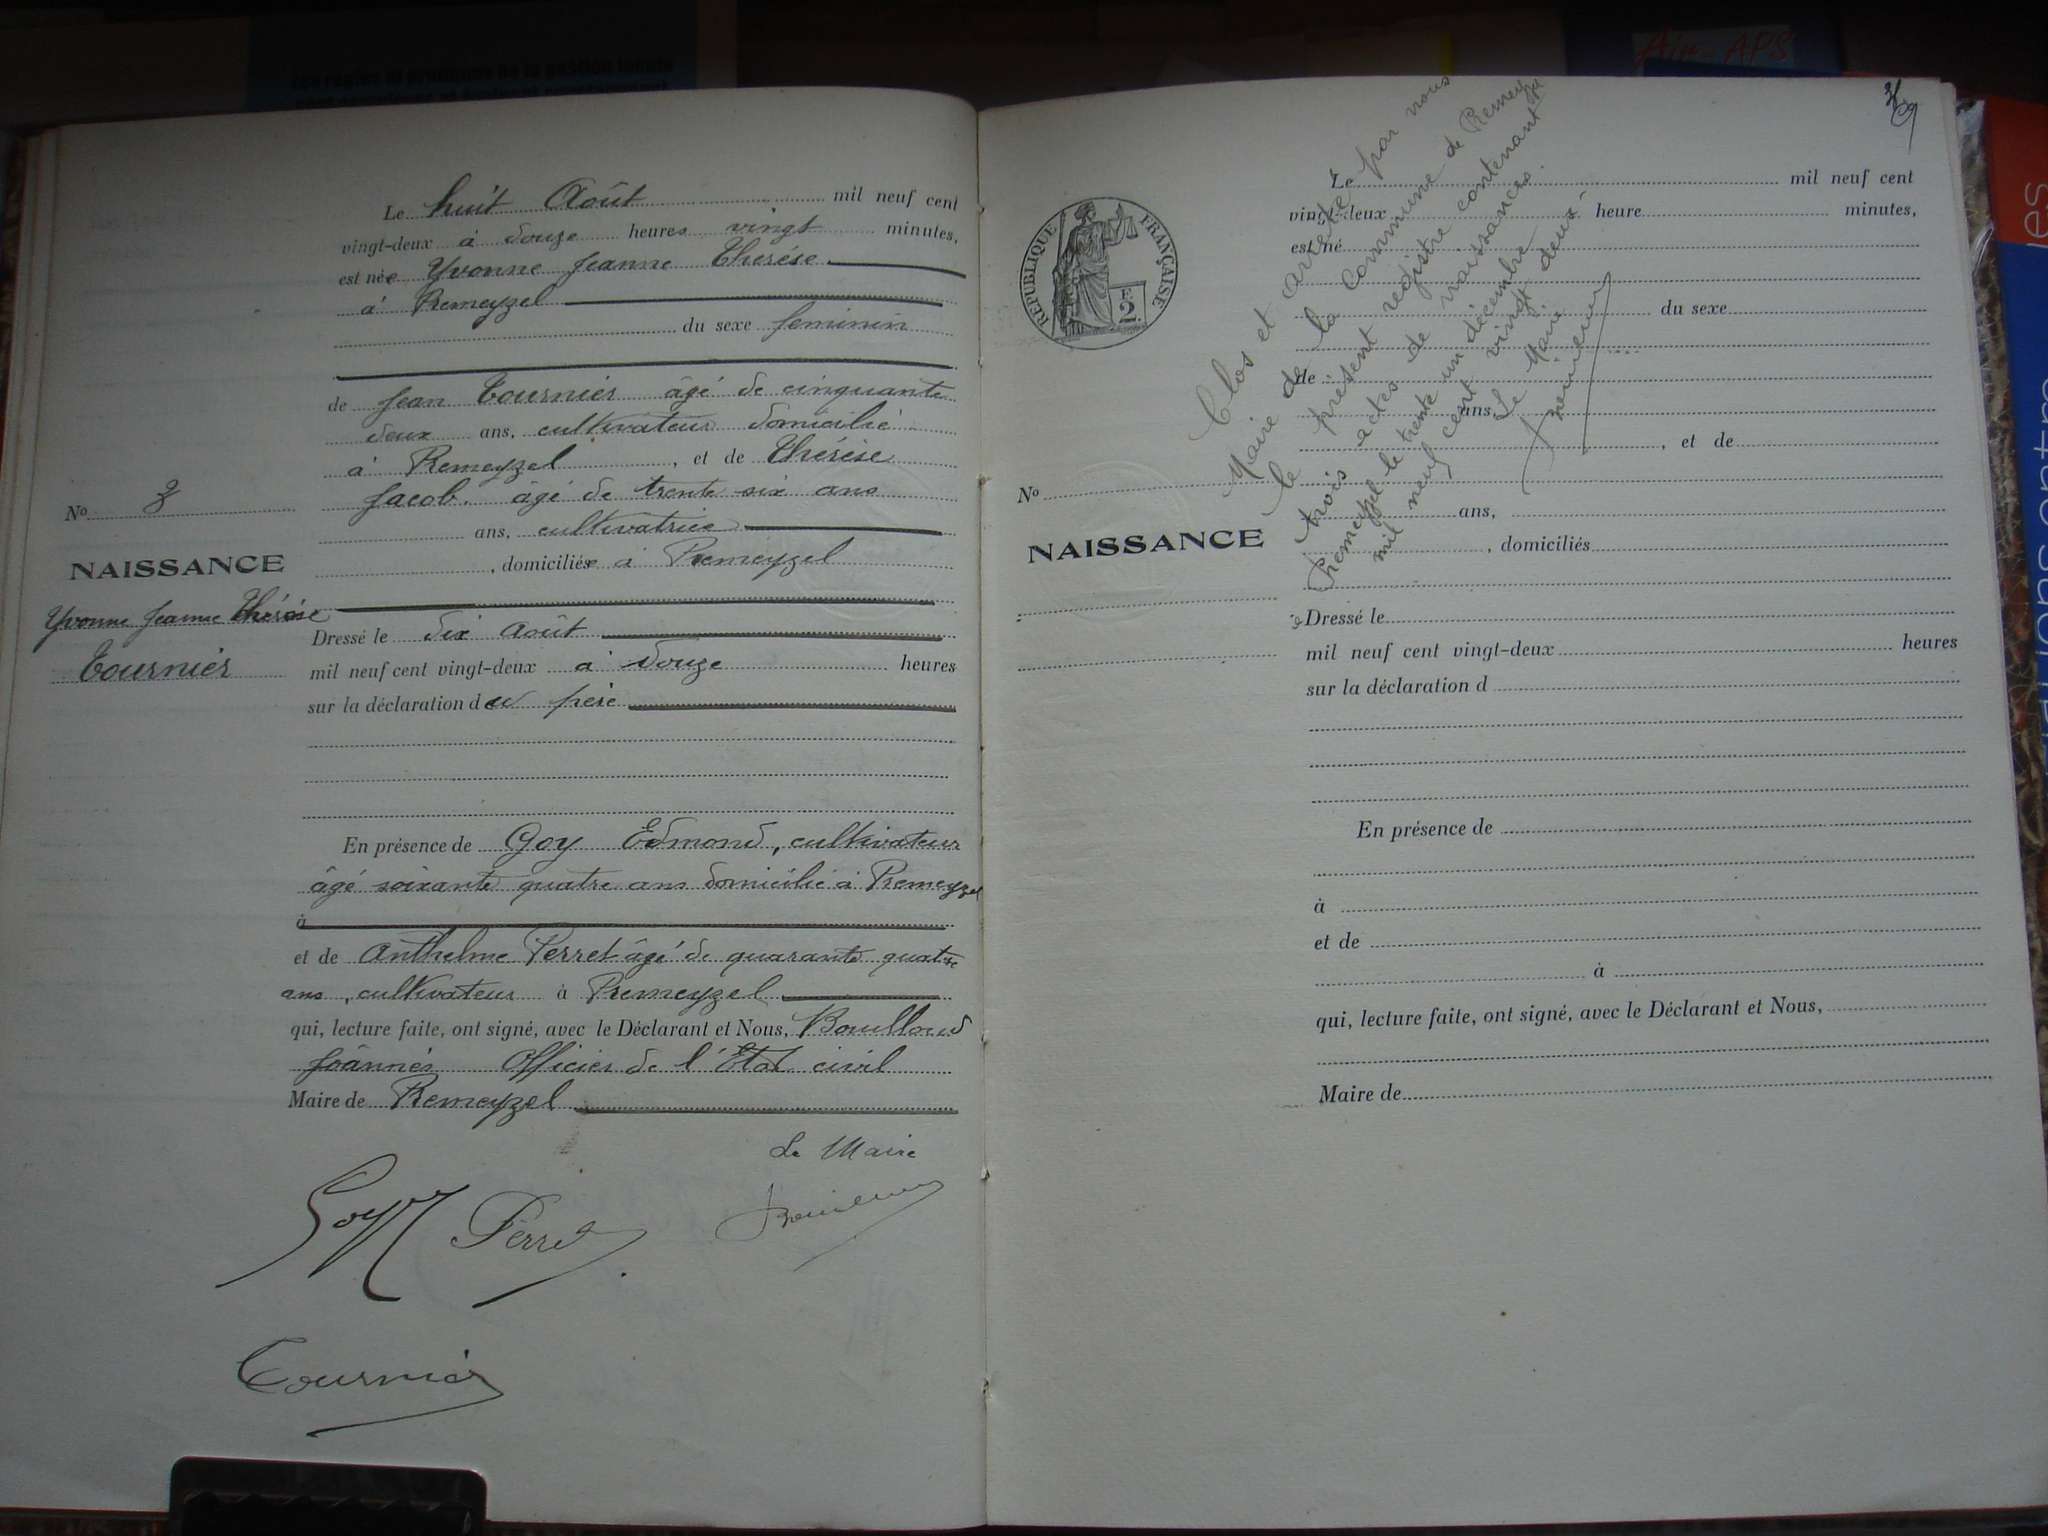 Le huit Août mil neuf cent
vingt-deux à douze heures vingt minutes,
est née Yvonne Jeanne Thérèse
à Premeyzel
du sexe feminin
de Jean Tournier âgé de cinquante
deux ans, cultivateur domicilié
à Premeyzel, et de Thérèse
Jacob. âgé de trente six ans
ans, cultivatrice
, domiciliés à Premeyzel
No 3
NAISSANCE
Yvonne Jeanne Thérèse
Tournier
Dressé le dix Août
mil neuf cent vingt-deux à douze heures
sur la déclaration du père
En présence de Goy Edmond, cultivateur
âgé soixante quatre ans domicilié à Premeyzel
à
et de Anthelme Perret âgé de quarante quatre
ans, cultivateur à Premeyzel
qui, lecture faite, ont signé, avec le Déclarant et Nous, Bouilloud
Joannès Officier de l'Etat civil
Maire de Premeyzel
Le Maire
Goy Perret
Tournier
RÉPUBLIQUE FRANÇAISE
2
Le mil neuf cent
vingt-deux heure minutes,
est né
du sexe
de
ans,
, et de
No
ans,
NAISSANCE
, domiciliés
Dressé le
mil neuf cent vingt-deux heures
sur la déclaration d
En présence de
à
et de
à
qui, lecture faite, ont signé, avec le Déclarant et Nous,
Maire de
Clos et arrêté par nous
Maire de la Commune de Premeyzel
le présent registre contenant
trois actes de naissances.
Premeyzel le trente un décembre
mil neuf cent vingt deux
Le Maire
Air APS